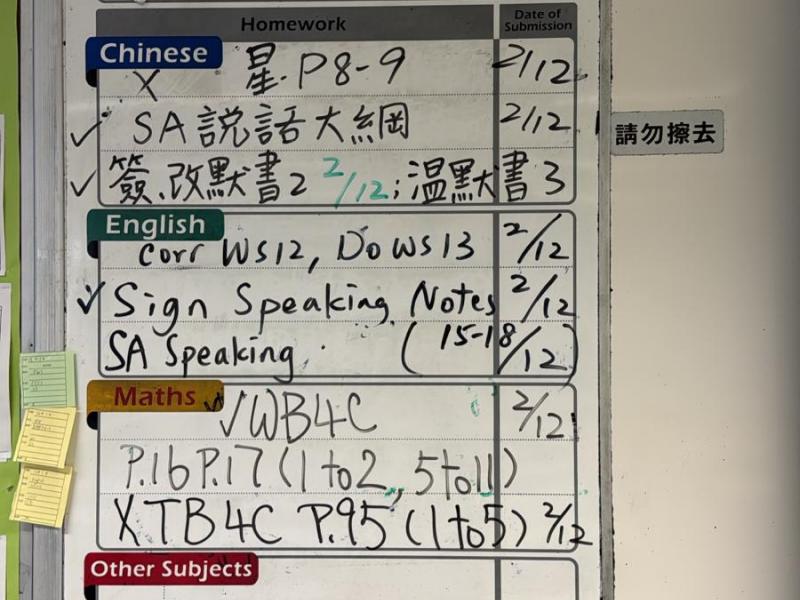 Homework
Date of Submission
Chinese
X 星.P8-9 2/12
✓ SA說話大綱 2/12
請勿擦去
✓ 簽.改默書2 2/12;溫默書3
English
Corr WS12, Do WS13 2/12
✓ Sign Speaking Notes 2/12
SA Speaking (15-18/12)
Maths
✓WB4C 2/12
P.16 P.17 (1 to 2, 5 to 11)
X TB4C P.95 (1 to 5) 2/12
Other Subjects